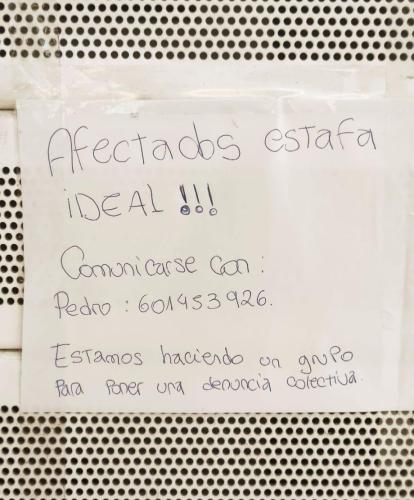 Afectados estafa
iDEAL !!!
Comunicarse con:
Pedro: 601453926.
Estamos haciendo un grupo
para poner una denuncia colectiva.